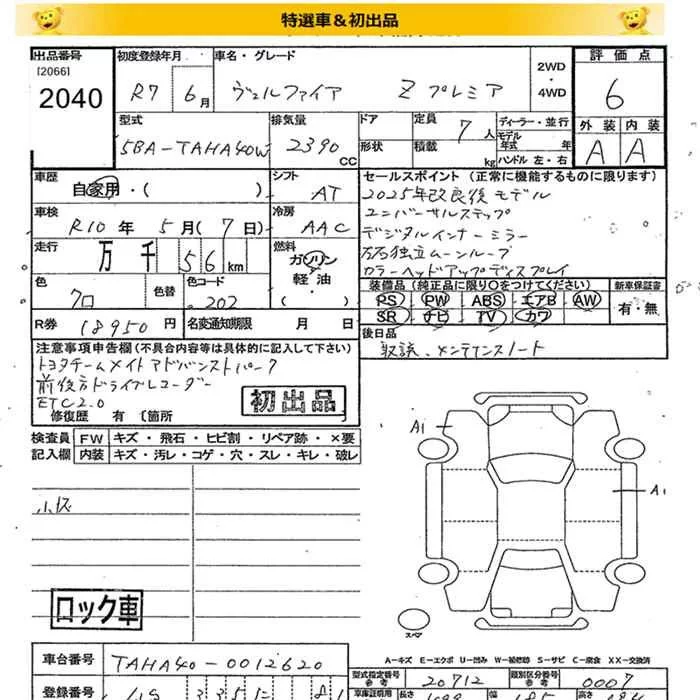 特選車&初出品
出品番号
[2066]
2040
初度登録年月
R7 6月
車名・グレード
ヴェルファイア Zプレミア
2WD
・
4WD
評価点
6
外装 内装
A A
型式
5BA-TAHA40W
排気量
2390 CC
ドア
形状
定員 7人
積載 kg
ディーラー・並行
モデル
年式 年
ハンドル 左・右
車歴
自家用・( )
シフト
AT
車検
R10年 5月(7日)
冷房
AAC
走行
万千 56 km
燃料
ガソリン
軽油
・( )
色
クロ
色替
色コード
202
R券 18950円
名変通知期限 月 日
セールスポイント (正常に機能するものに限ります)
2025年改良後モデル
ユニバーサルステップ
デジタルインナーミラー
左右独立ムーンルーフ
カラーヘッドアップディスプレイ
装備品 (純正品に限り○をつけてください)
PS PW ABS エアB AW
SR ナビ TV カワ
新車保証書
有・無
後日品
取説、メンテナンスノート
注意事項申告欄(不具合内容等は具体的に記入して下さい)
トヨタチームメイト アドバンストパーク
前後方ドライブレコーダー
ETC2.0
初出品
修復歴 有 〔箇所
検査員
記入欄
FW キズ・飛石・ヒビ割・リペア跡・×要
内装 キズ・汚レ・コゲ・穴・スレ・キレ・破レ
小キズ
A1
A1
スペア
ロック車
A-キズ E-エクボ U-凹み W-補修跡 S-サビ C-腐食 XX-交換済
車台番号
TAHA40-0012620
型式指定番号
参考
20712
類別区分番号
参考
0007
登録番号
車庫証明用
長さ
幅
185
高さ